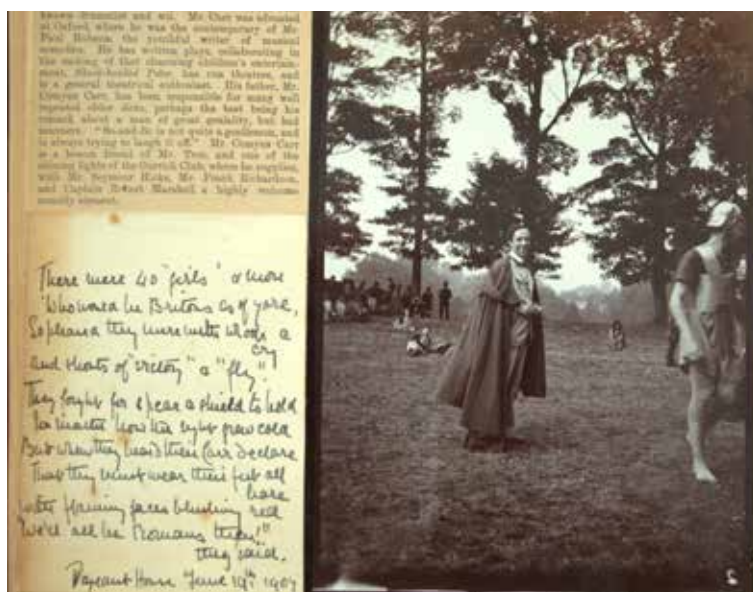 known dramatist and wit. Mr. Carr was educated
at Oxford, where he was the contemporary of Mr.
Paul Rubens, the youthful writer of musical
comedies. He has written plays, collaborating in
the making of that charming children's entertain-
ment, Shock-headed Peter, has run theatres, and
is a general theatrical enthusiast. His father, Mr.
Comyns Carr, has been responsible for many well
expressed obiter dicta, perhaps the best being his
remark about a man of great geniality, but bad
manners: "So-and-So is not quite a gentleman, and
is always trying to laugh it off." Mr. Comyns Carr
is a bosom friend of Mr. Tree, and one of the
shining lights of the Garrick Club, where he supplies,
with Mr. Seymour Hicks, Mr. Frank Richardson,
and Captain Robert Marshall a highly welcome
comedy element.
There were 40 'girls' & more
Who wd be Britons as of yore,
So pleased they were with a
cry
and shouts of "victory" & "fly".
They fought for spear & shield to hold
No matter how the night grew cold
But when they heard their Carr declare
That they must wear their feet all
bare
with flaming faces blushing red
"We'll all be Romans then!"
they said.
Pageant House June 19th 1907